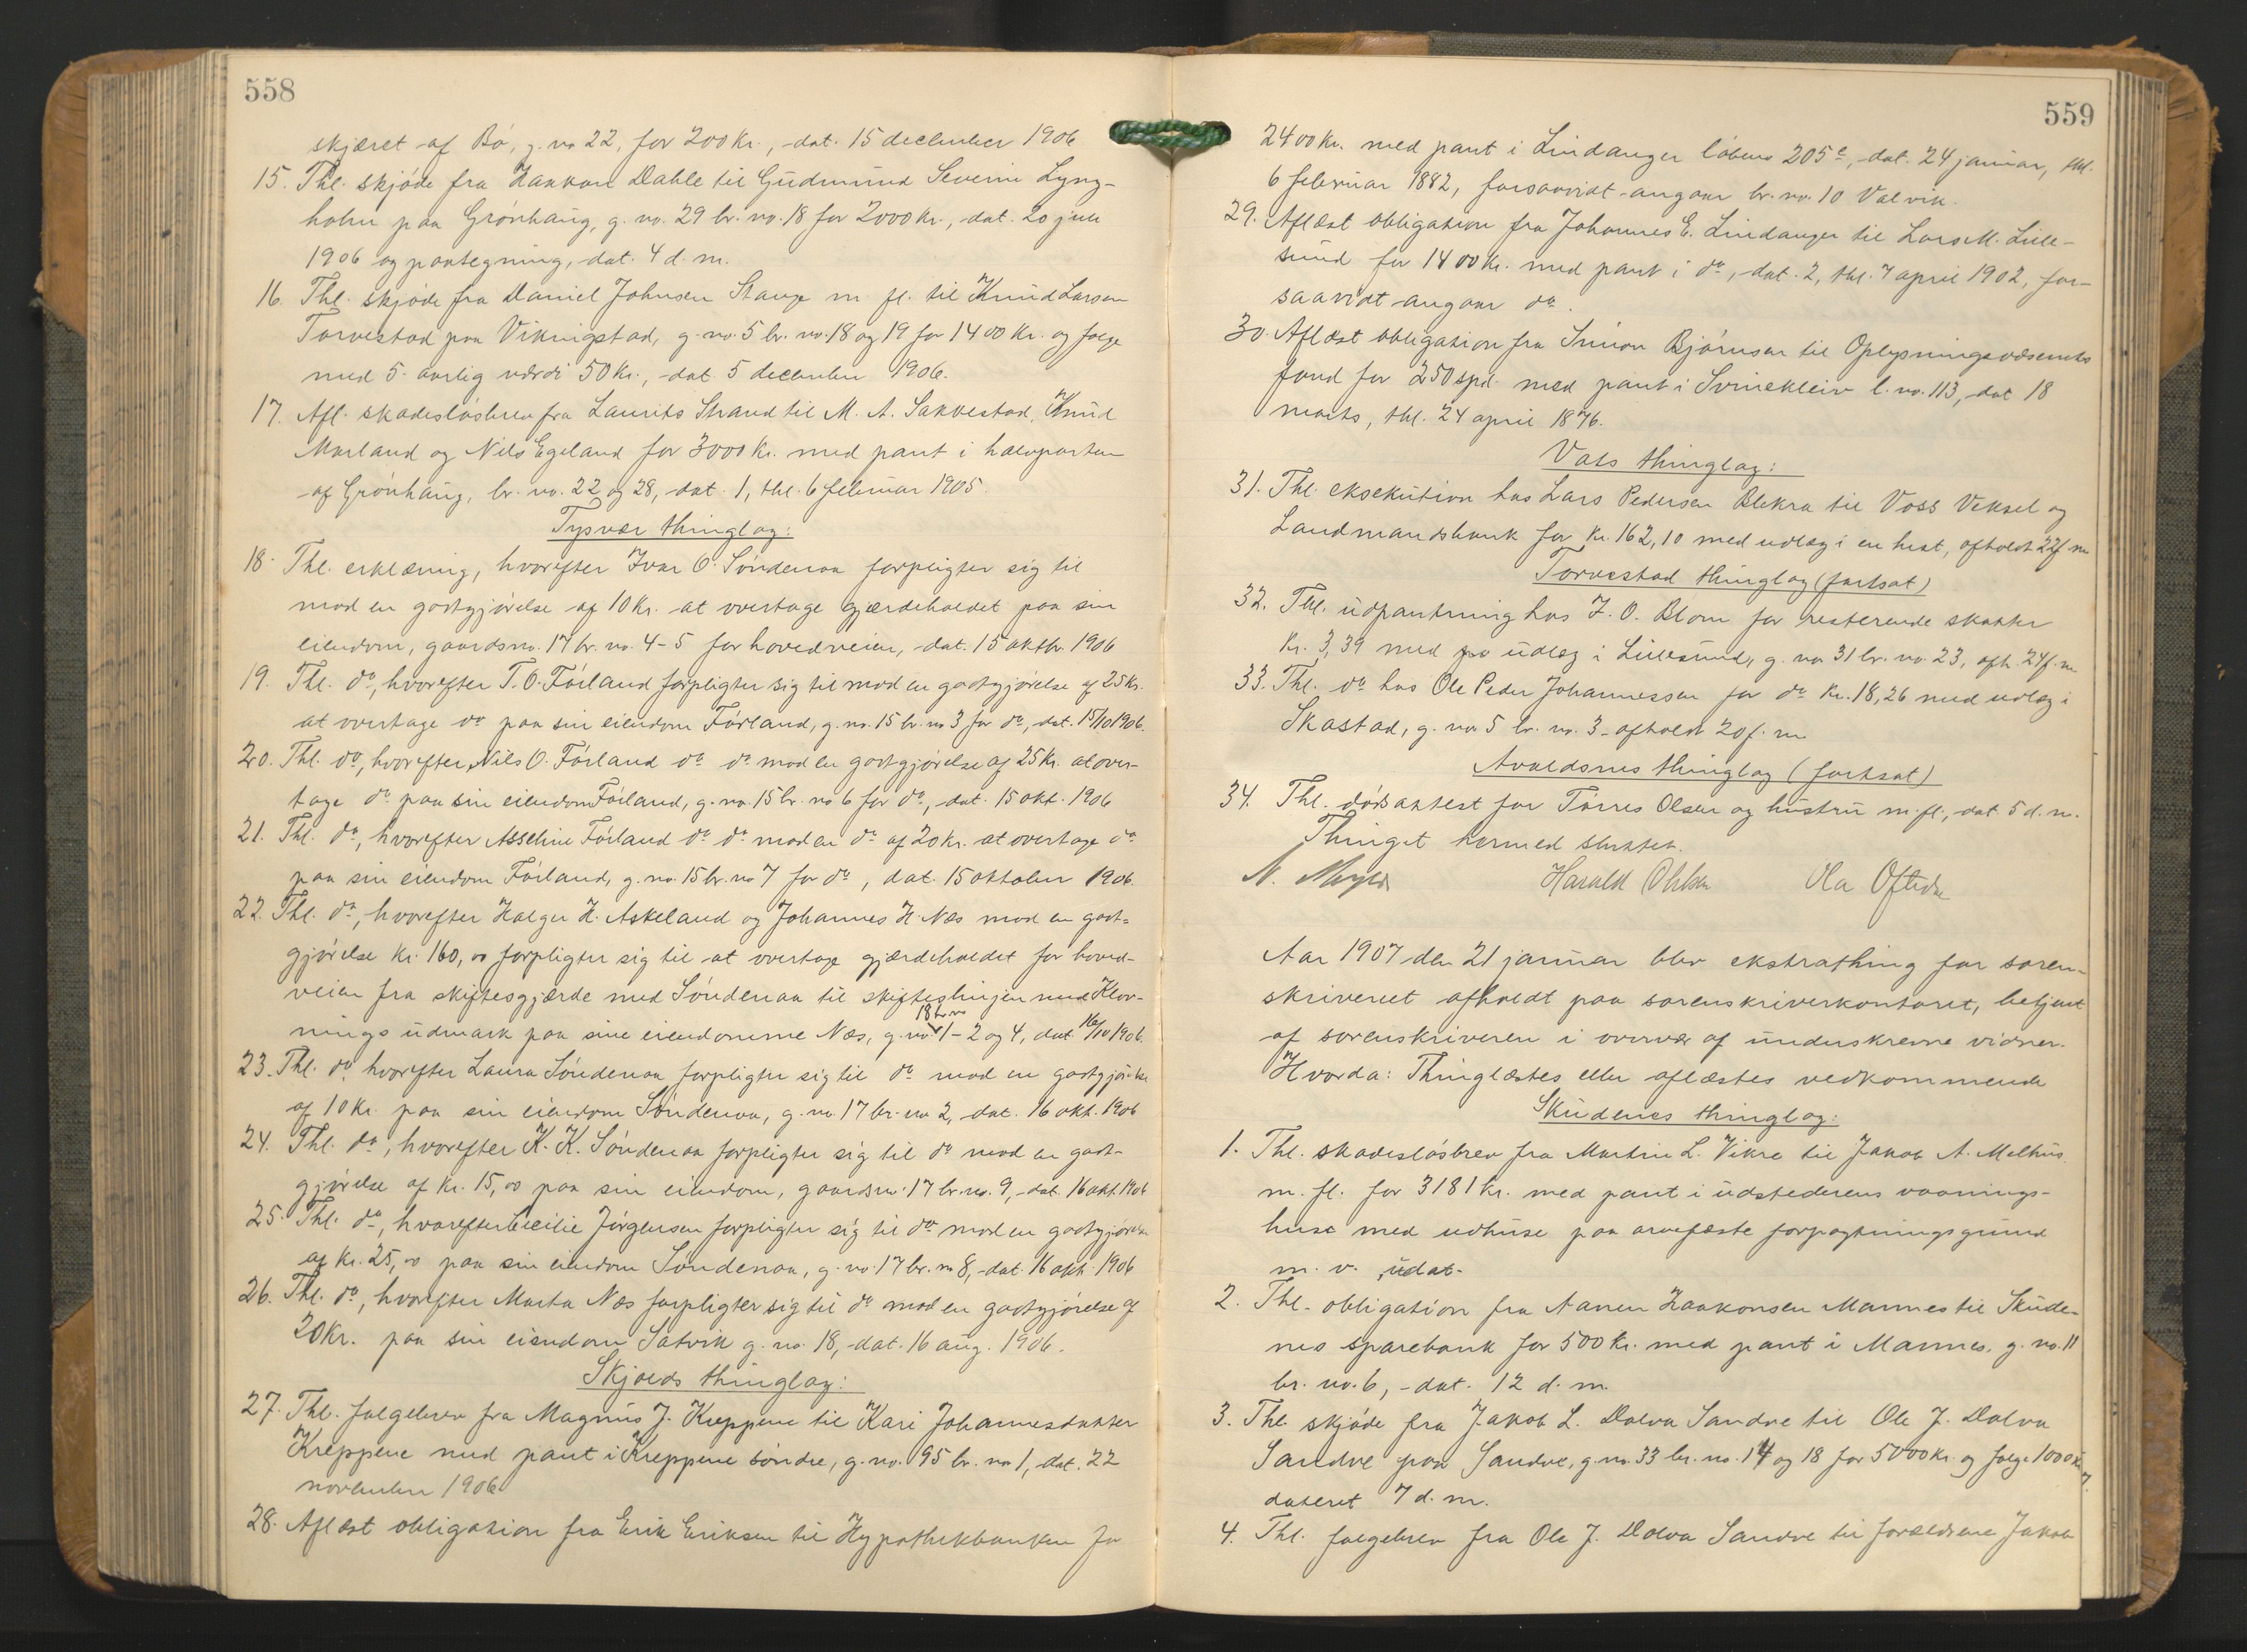 558
skjæret af Bø, g. no 22, for 200 Kr., dat. 15 december 1906
15. Thl. skjøde fra Haakon Dahle til Gudmund Severin Lyng-
holm paa Grønhaug, g. no. 29 br. no. 18 for 2000 Kr., dat. 20 juli
1906 og paategning, dat. 4 d. m.
16. Thl. skjøde fra Daniel Johnsen Stange m. fl. til Knud Larsen
Torvestad paa Vikingstad, g. no. 5 br. no. 18 og 19 for 1400 Kr. og følge
med 5 aarlig værdi 50 Kr., dat. 5 december 1906.
17. Afl. skadesløsbrev fra Laurits Strand til M. A. Sakkestad, Knud
Mæland og Nils Egeland for 3000 Kr. med pant i halvparten
af Grønhaug, br. no. 22 og 28, dat. 1, thl. 6 februar 1905.
Tysvær thinglag:
18. Thl. erklæring, hvorefter Ivar O. Søndenaa forpligter sig til
mod en godtgjørelse af 10 Kr. at overtage gjærdeholdet paa sin
eiendom, gaardsno. 17 br. no. 4-5 for hovedveien, dat. 15 oktbr. 1906
19. Thl. do, hvorefter T. O. Førland forpligter sig til mod en godtgjørelse af 25 Kr.
at overtage do paa sin eiendom Førland, g. no. 15 br. no 3 for do, dat. 15/10 1906.
20. Thl. do, hvorefter Nils O. Førland do do mod en godtgjørelse af 25 Kr. at over-
tage do paa sin eiendom Førland, g. no. 15 br. no 6 for do, dat. 15 okt. 1906
21. Thl. do, hvorefter Asseline Førland do do mod en do af 20 Kr. at overtage do
paa sin eiendom Førland, g. no. 15 br. no 7 for do, dat. 15 oktober 1906.
22. Thl. do, hvorefter Holger H. Askeland og Johannes H. Næs mod en godt-
gjørelse Kr. 160,00 forpligter sig til at overtage gjærdeholdet for hoved-
veien fra skiftesgjærde med Søndenaa til skifteslinjen med Klov-
nings udmark paa sine eiendomme Næs, g. no 18 br. no 1-2 og 4, dat. 16/10 1906.
23. Thl. do hvorefter Laura Søndenaa forpligter sig til do mod en godtgjørelse
af 10 Kr. paa sin eiendom Søndenaa, g. no. 17 br. no 2, dat. 16 okt. 1906
24. Thl. do, hvorefter K. K. Søndenaa forpligter sig til do mod en godt-
gjørelse af Kr. 15,00 paa sin eiendom, gaardsno. 17 br. no. 9, dat. 16 okt. 1906
25. Thl. do, hvorefter Cecilie Jørgensen forpligter sig til do mod en godtgjørelse
af Kr. 25,00 paa sin eiendom Søndenaa, g. no. 17 br. no 8, dat. 16 okt. 1906
26. Thl. do, hvorefter Marta Næs forpligter sig til do mod en godtgjørelse af
20 Kr. paa sin eiendom Satvik g. no. 18, dat. 16 aug. 1906.
Skjolds thinglag:
27. Thl. følgebrev fra Magnus J. Kreppene til Kari Johannesdatter
Kreppene med pant i Kreppene søndre, g. no. 95 br. no 1, dat. 22
november 1906
28. Aflæst obligation fra Erik Eriksen til Hypothekbanken for
559
2400 Kr. med pant i Lindanger løbeno 205c, dat. 24 januar, thl.
6 februar 1882, forsaavidt angaar br. no. 10 Valvik.
29. Aflæst obligation fra Johannes E. Lindanger til Lars M. Lille-
sund for 1400 Kr. med pant i do, dat. 2, thl. 7 april 1902, for-
saavidt angaar do.
30. Aflæst obligation fra Simon Bjørnsen til Oplysningsvæsenets
fond for 250 spd. med pant i Svinekleiv l. no. 113, dat 18
marts, thl. 24 april 1876.
Vats thinglag:
31. Thl. eksekution hos Lars Pedersen Blikra til Voss Veksel og
Landmandsbank for Kr. 162,10 med udlæg i en hest, afholdt 22 f. m
Torvestad thinglag (fortsat)
32. Thl. udpantning hos J. O. Blom for resterende skatter
Kr. 3,39 med udlæg i Lillesund, g. no 31 br. no. 23, afh. 24 f. m
33. Thl. do hos Ole Peder Johannessen for do Kr. 18,26 med udlæg i
Skastad, g. no. 5 br. no. 3 afholdt 20 f. m
Avaldsnes thinglag (fortsat)
34. Thl. dødsattest for Tørres Olsen og hustru m. fl., dat. 5 d. m.
Thinget hermed sluttet.
Harald Ohlsen Ola Oftedal
Aar 1907 den 21 januar blev ekstrathing for soren-
skriveriet afholdt paa sorenskriverkontoret, betjent
af sorenskriveren i overvær af underskrevne vidner.
Hvorda: Thinglæstes eller aflæstes vedkommende
Skudenes thinglag:
1. Thl. skadesløsbrev fra Martin L. Vikre til Jakob A. Melhus
m. fl. for 3181 Kr. med pant i udstederens vaanings-
huse med udhuse paa arvefæste forpagtningsgrund
m. v. udat.
2. Thl. obligation fra Aanen Haakonsen Mannes til Skude-
nes sparebank for 500 Kr. med pant i Mannes, g. no. 11
br. no. 6, dat. 12 d. m.
3. Thl skjøde fra Jakob L. Dalva Sandve til Ole J. Dalva
Sandve paa Sandve, g. no. 33 br. no. 14 og 18 for 5000 Kr. og følge 1000 Kr.
dateret 7 d. m.
4. Thl. følgebrev fra Ole J. Dalva Sandve til forældrene Jakob